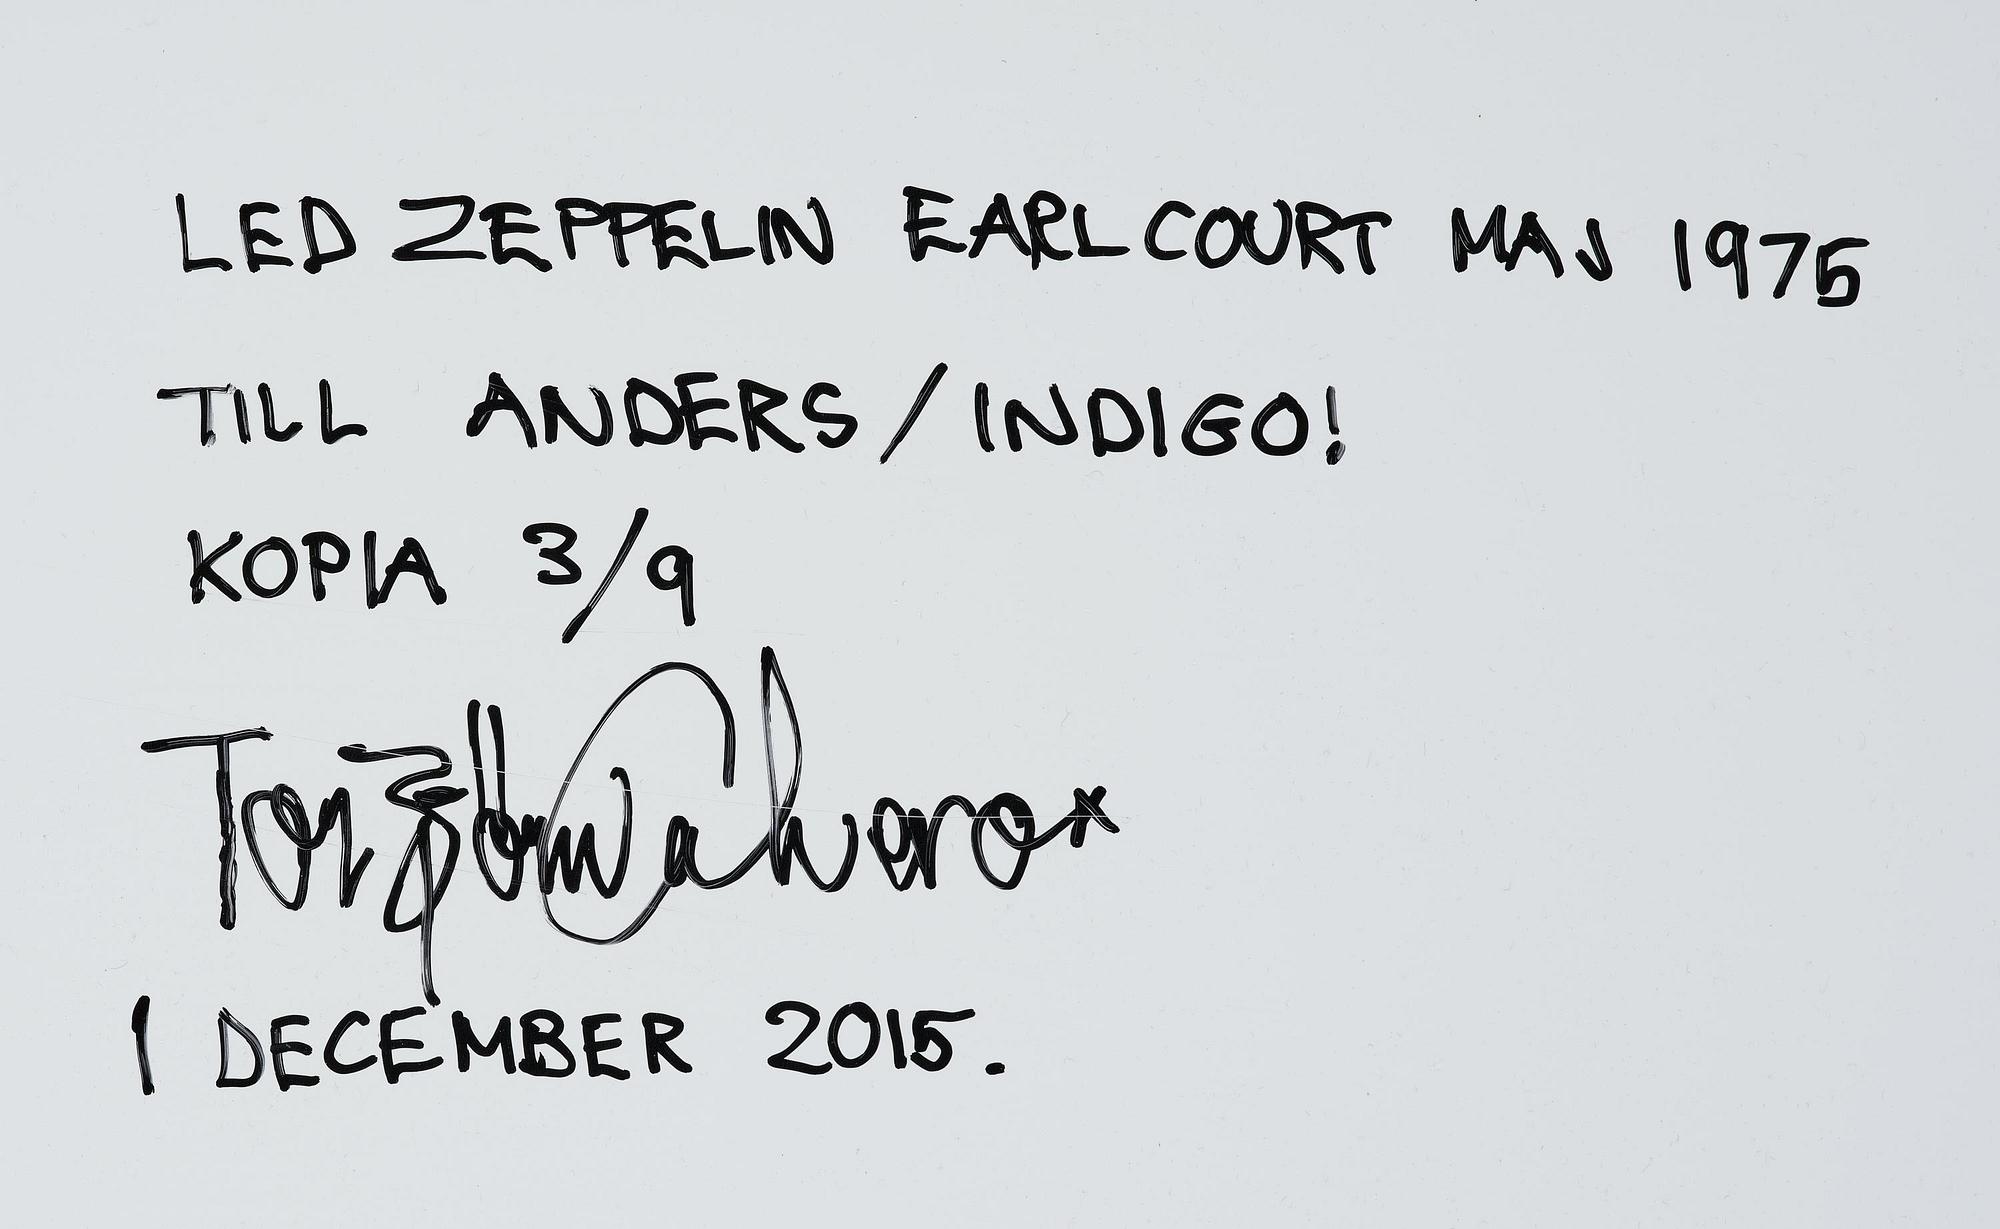 LED ZEPPELIN EARL COURT MAJ 1975
TILL ANDERS / INDIGO!
KOPIA 3/9
Torbjörn Calvero
1 DECEMBER 2015.